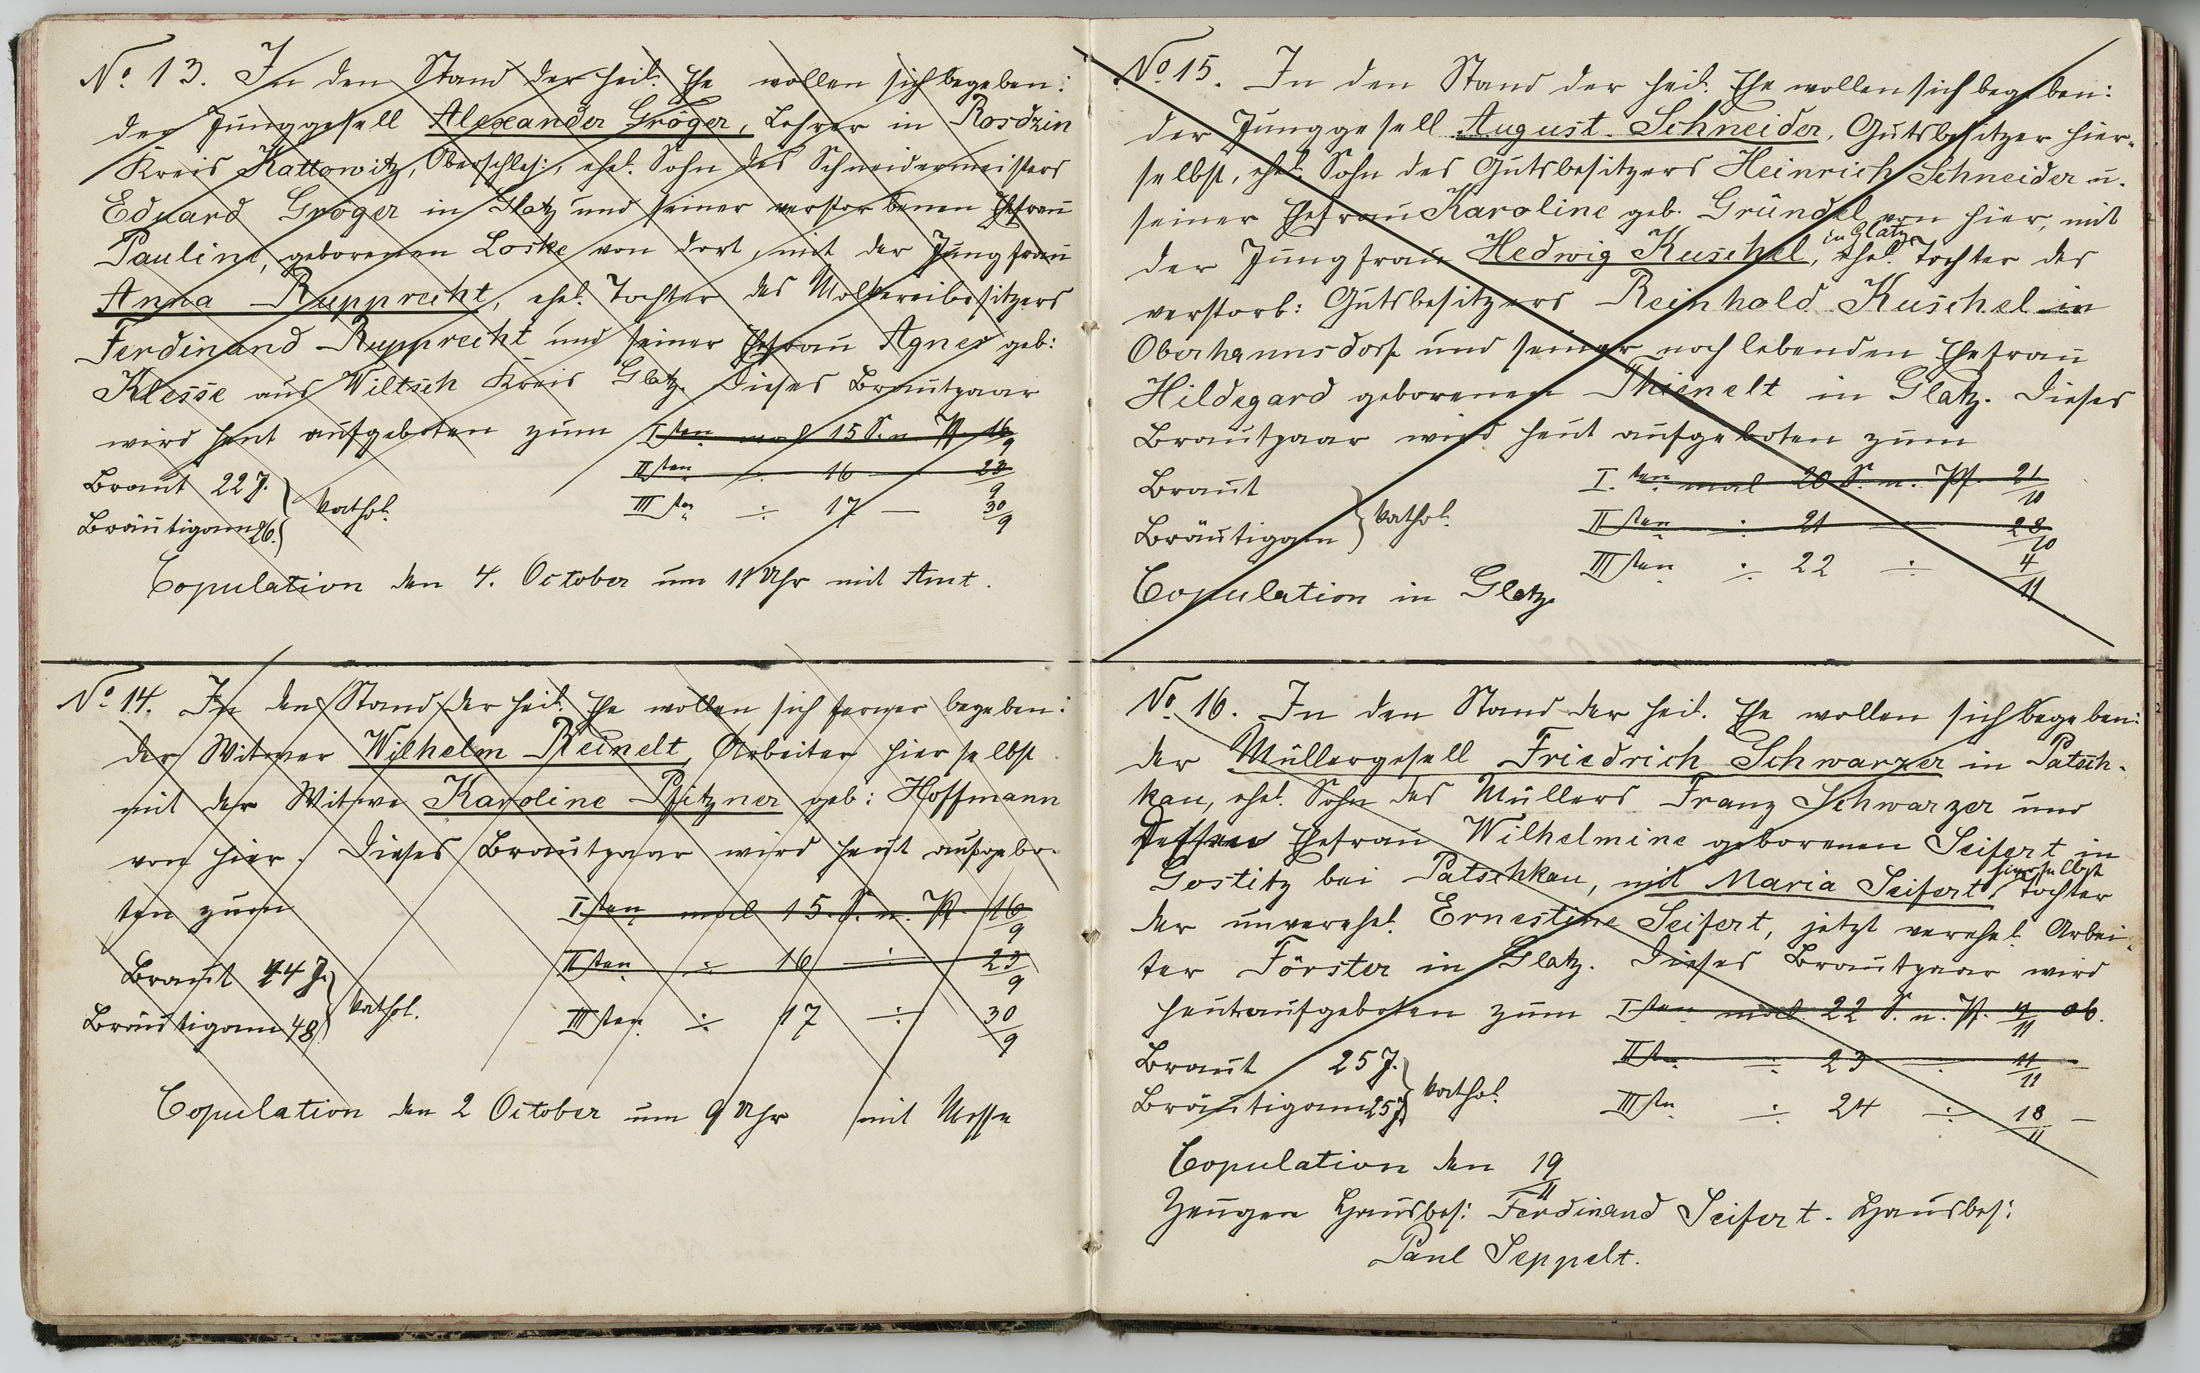 No. 13. In den Stand der heil. Ehe wollen sich begeben:
der Junggesell Alexander Gröger, Lehrer in Rosdzin
Kreis Kattowitz, Oberschles:, ehel. Sohn des Schneidermeisters
Eduard Gröger in Glatz und seiner verstorbenen Ehefrau
Pauline, geborenen Loske von dort, mit der Jungfrau
Anna Rupprecht, ehel. Tochter des Molkereibesitzers
Ferdinand Rupprecht und seiner Ehefrau Agnes geb:
Klesse aus Wiltsch Kreis Glatz. Dieses Brautpaar
wird heut aufgeboten zum Iten mal 15 S. n. Pf. 16/9
IIten ÷ 16 — 23/9
Braut 22 J.
Bräutigam 26. } kathol.
IIIten ÷ 17 — 30/9
Copulation den 4. October um 11 Uhr mit Amt.
No. 14. In den Stand der heil. Ehe wollen sich ferner begeben:
der Witwer Wilhelm Reinelt, Arbeiter hierselbst
mit der Witwe Karoline Pfitzner geb: Hoffmann
von hier. Dieses Brautpaar wird heut aufgebo-
ten zum Iten mal 15. S. n. Pf. 16/9
IIten ÷ 16 ÷ 23/9
Braut 44 J.
Bräutigam 48 } kathol.
IIIten ÷ 17 ÷ 30/9
Copulation den 2 October um 9 Uhr mit Messe
No. 15. In den Stand der heil. Ehe wollen sich begeben:
der Junggesell August Schneider, Gutsbesitzer hier-
selbst, ehel. Sohn des Gutsbesitzers Heinrich Schneider u.
seiner Ehefrau Karoline geb. Gründel von hier, mit
der Jungfrau Hedwig Kuschel, in Glatz ehel. Tochter des
verstorb: Gutsbesitzers Reinhold Kuschel in
Oberhannsdorf und seiner noch lebenden Ehefrau
Hildegard geborenen Thienelt in Glatz. Dieses
Brautpaar wird heut aufgeboten zum
Braut
I.ten mal 20 S. n. Pf. 21/10
Bräutigam } kathol.
IIten ÷ 21 ÷ 28/10
IIIten ÷ 22 ÷ 4/11
Copulation in Glatz
No. 16. In den Stand der heil. Ehe wollen sich begeben:
der Müllergesell Friedrich Schwarzer in Patsch-
kau, ehel. Sohn des Müllers Franz Schwarzer und
dessen Ehefrau Wilhelmine geborenen Seifert in
Gostitz bei Patschkau, mit Maria Seifert, hierselbst Tochter
der unverehel. Ernestine Seifert, jetzt verehel. Arbei-
ter Förster in Glatz. Dieses Brautpaar wird
heut aufgeboten zum Iten mal. 22 S. n. Pf. 4/11 ab.
Braut 25 J.
IIten ÷ 23 ÷ 11/11 —
Bräutigam 25 J. } kathol.
IIIten ÷ 24 ÷ 18/11 —
Copulation den 19/11
Zeugen Hausbes: Ferdinand Seifert. Hausbes:
Paul Seppelt.